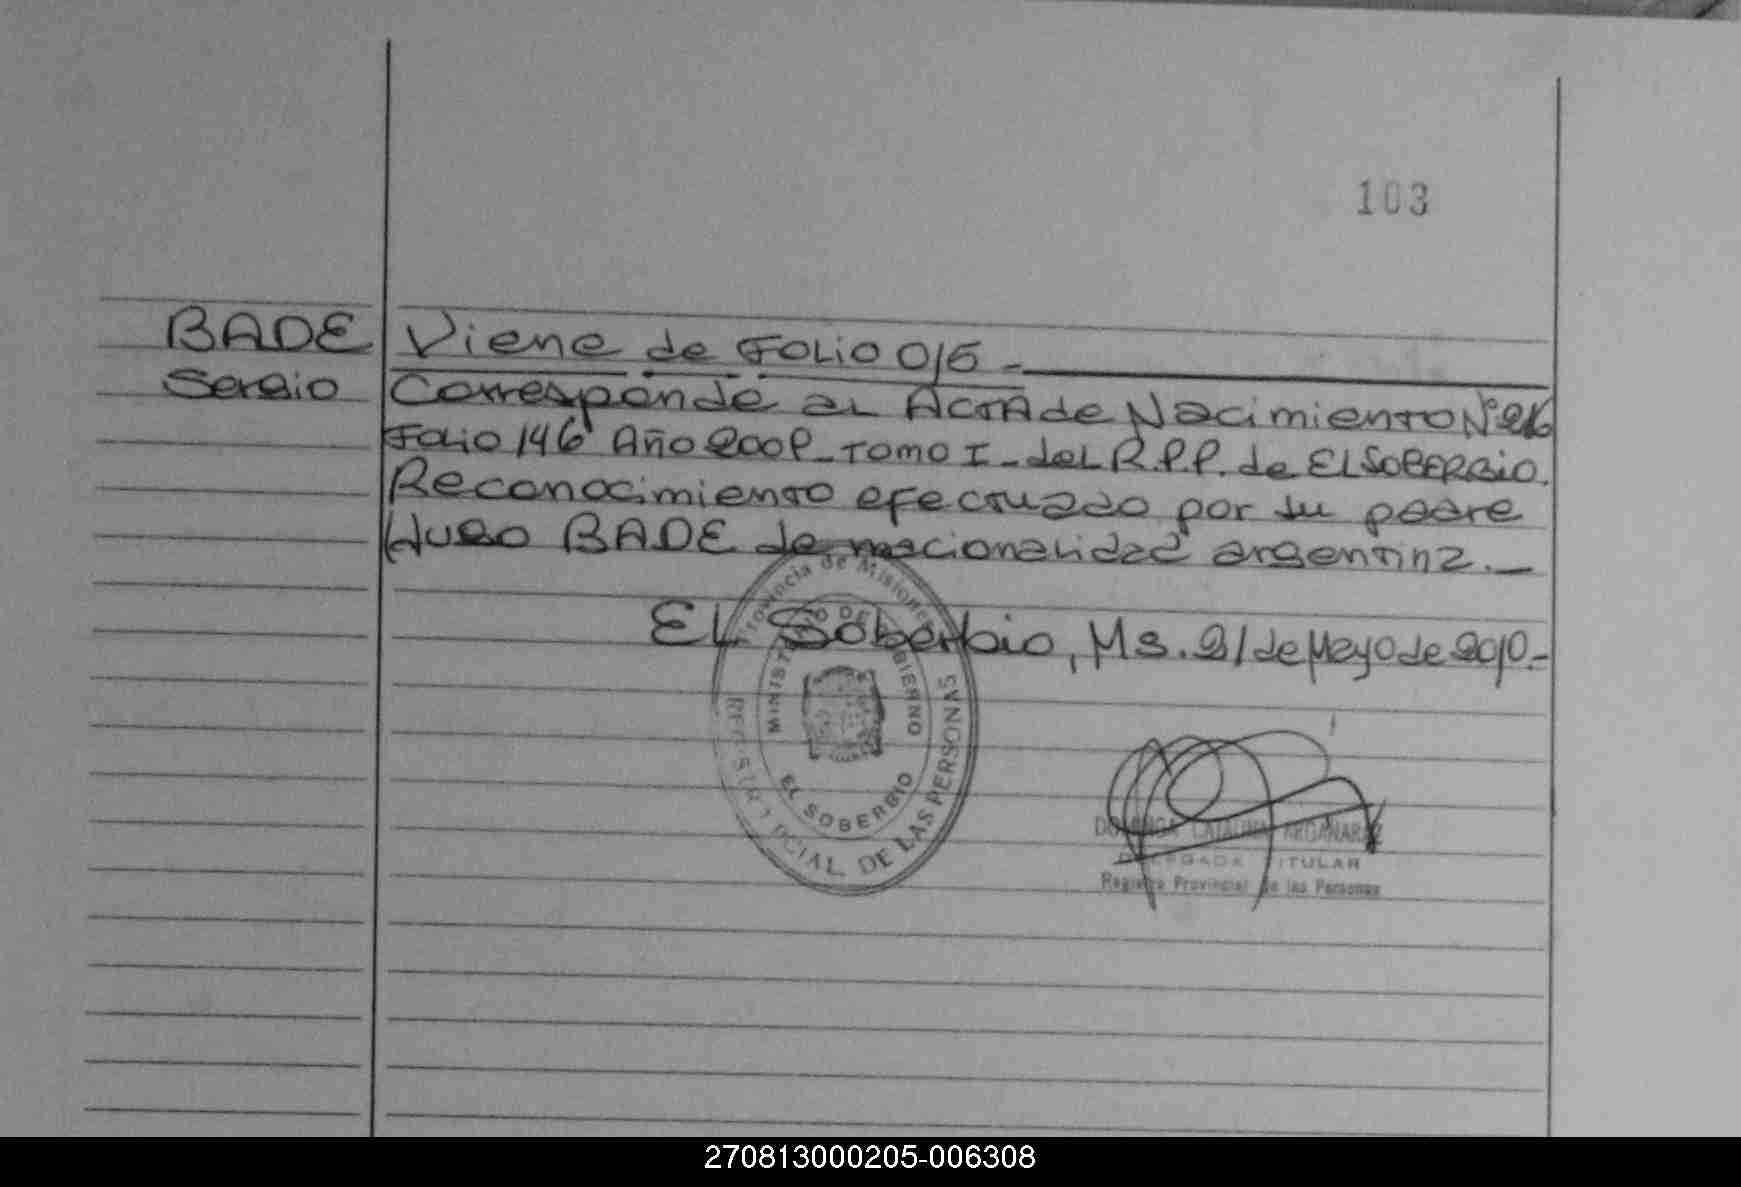 103
BADE Viene de Folio 015 -
Sergio Corresponde al Acta de Nacimiento Nº 216
Folio 146 Año 2008 - Tomo I - del R.P.P. de El Soberbio.
Reconocimiento efectuado por su padre
Hugo BADE de nacionalidad argentina. -
El Soberbio, Ms. 21 de Mayo de 2010. -
Provincia de Misiones
MINISTERIO DE GOBIERNO
EL SOBERBIO
REGISTRO PROVINCIAL DE LAS PERSONAS
CATALINA ARGAÑARAZ
DELEGADA TITULAR
Registro Provincial de las Personas
270813000205-006308